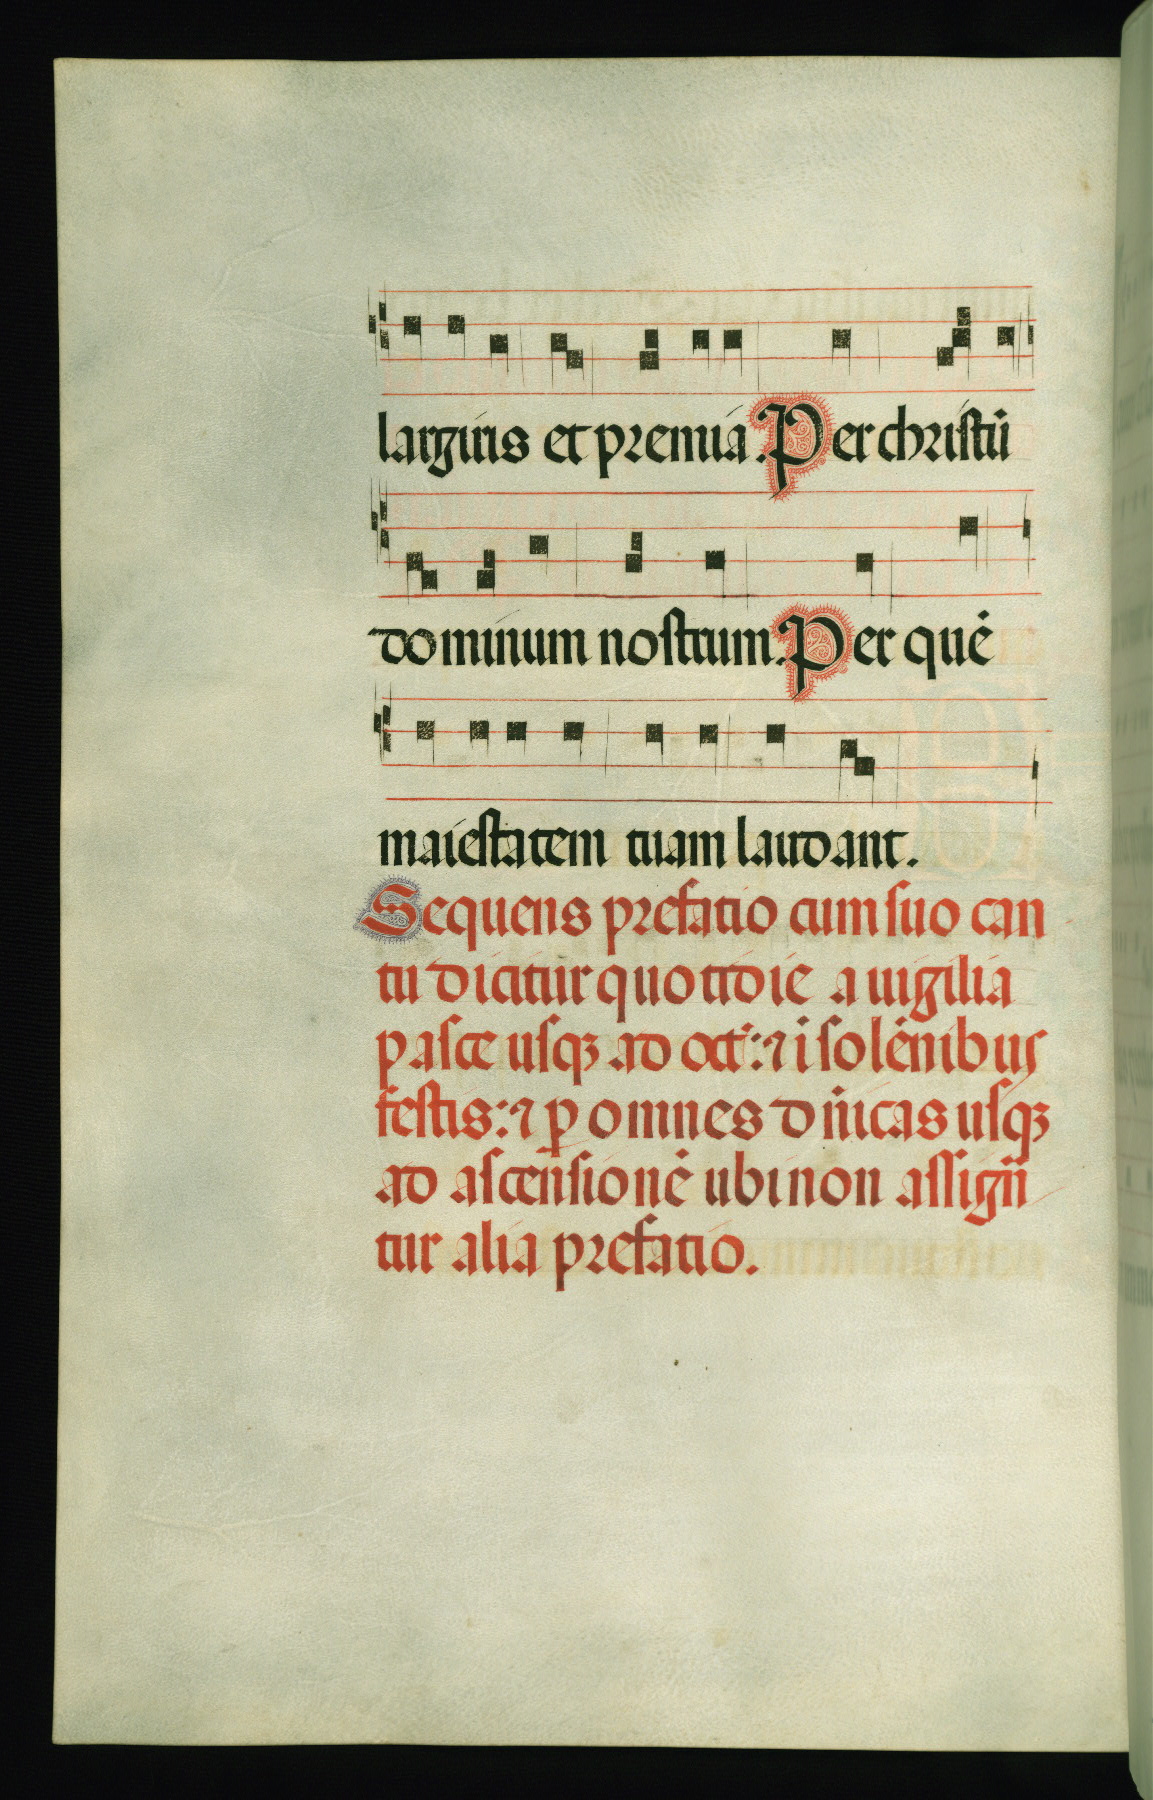 largiris et premia. Per christū
dominum nostrum. Per quē
maiestatem tuam laudant.
Sequens prefatio cum suo can
tu dicitur quottidie a uigilia
pasce usqꝫ ad oct̄: ⁊ ī solēnibus
festis: ⁊ ꝑ omnes dn̄icas usqꝫ
ad ascensionē ubi non assign̄
tur alia prefatio.